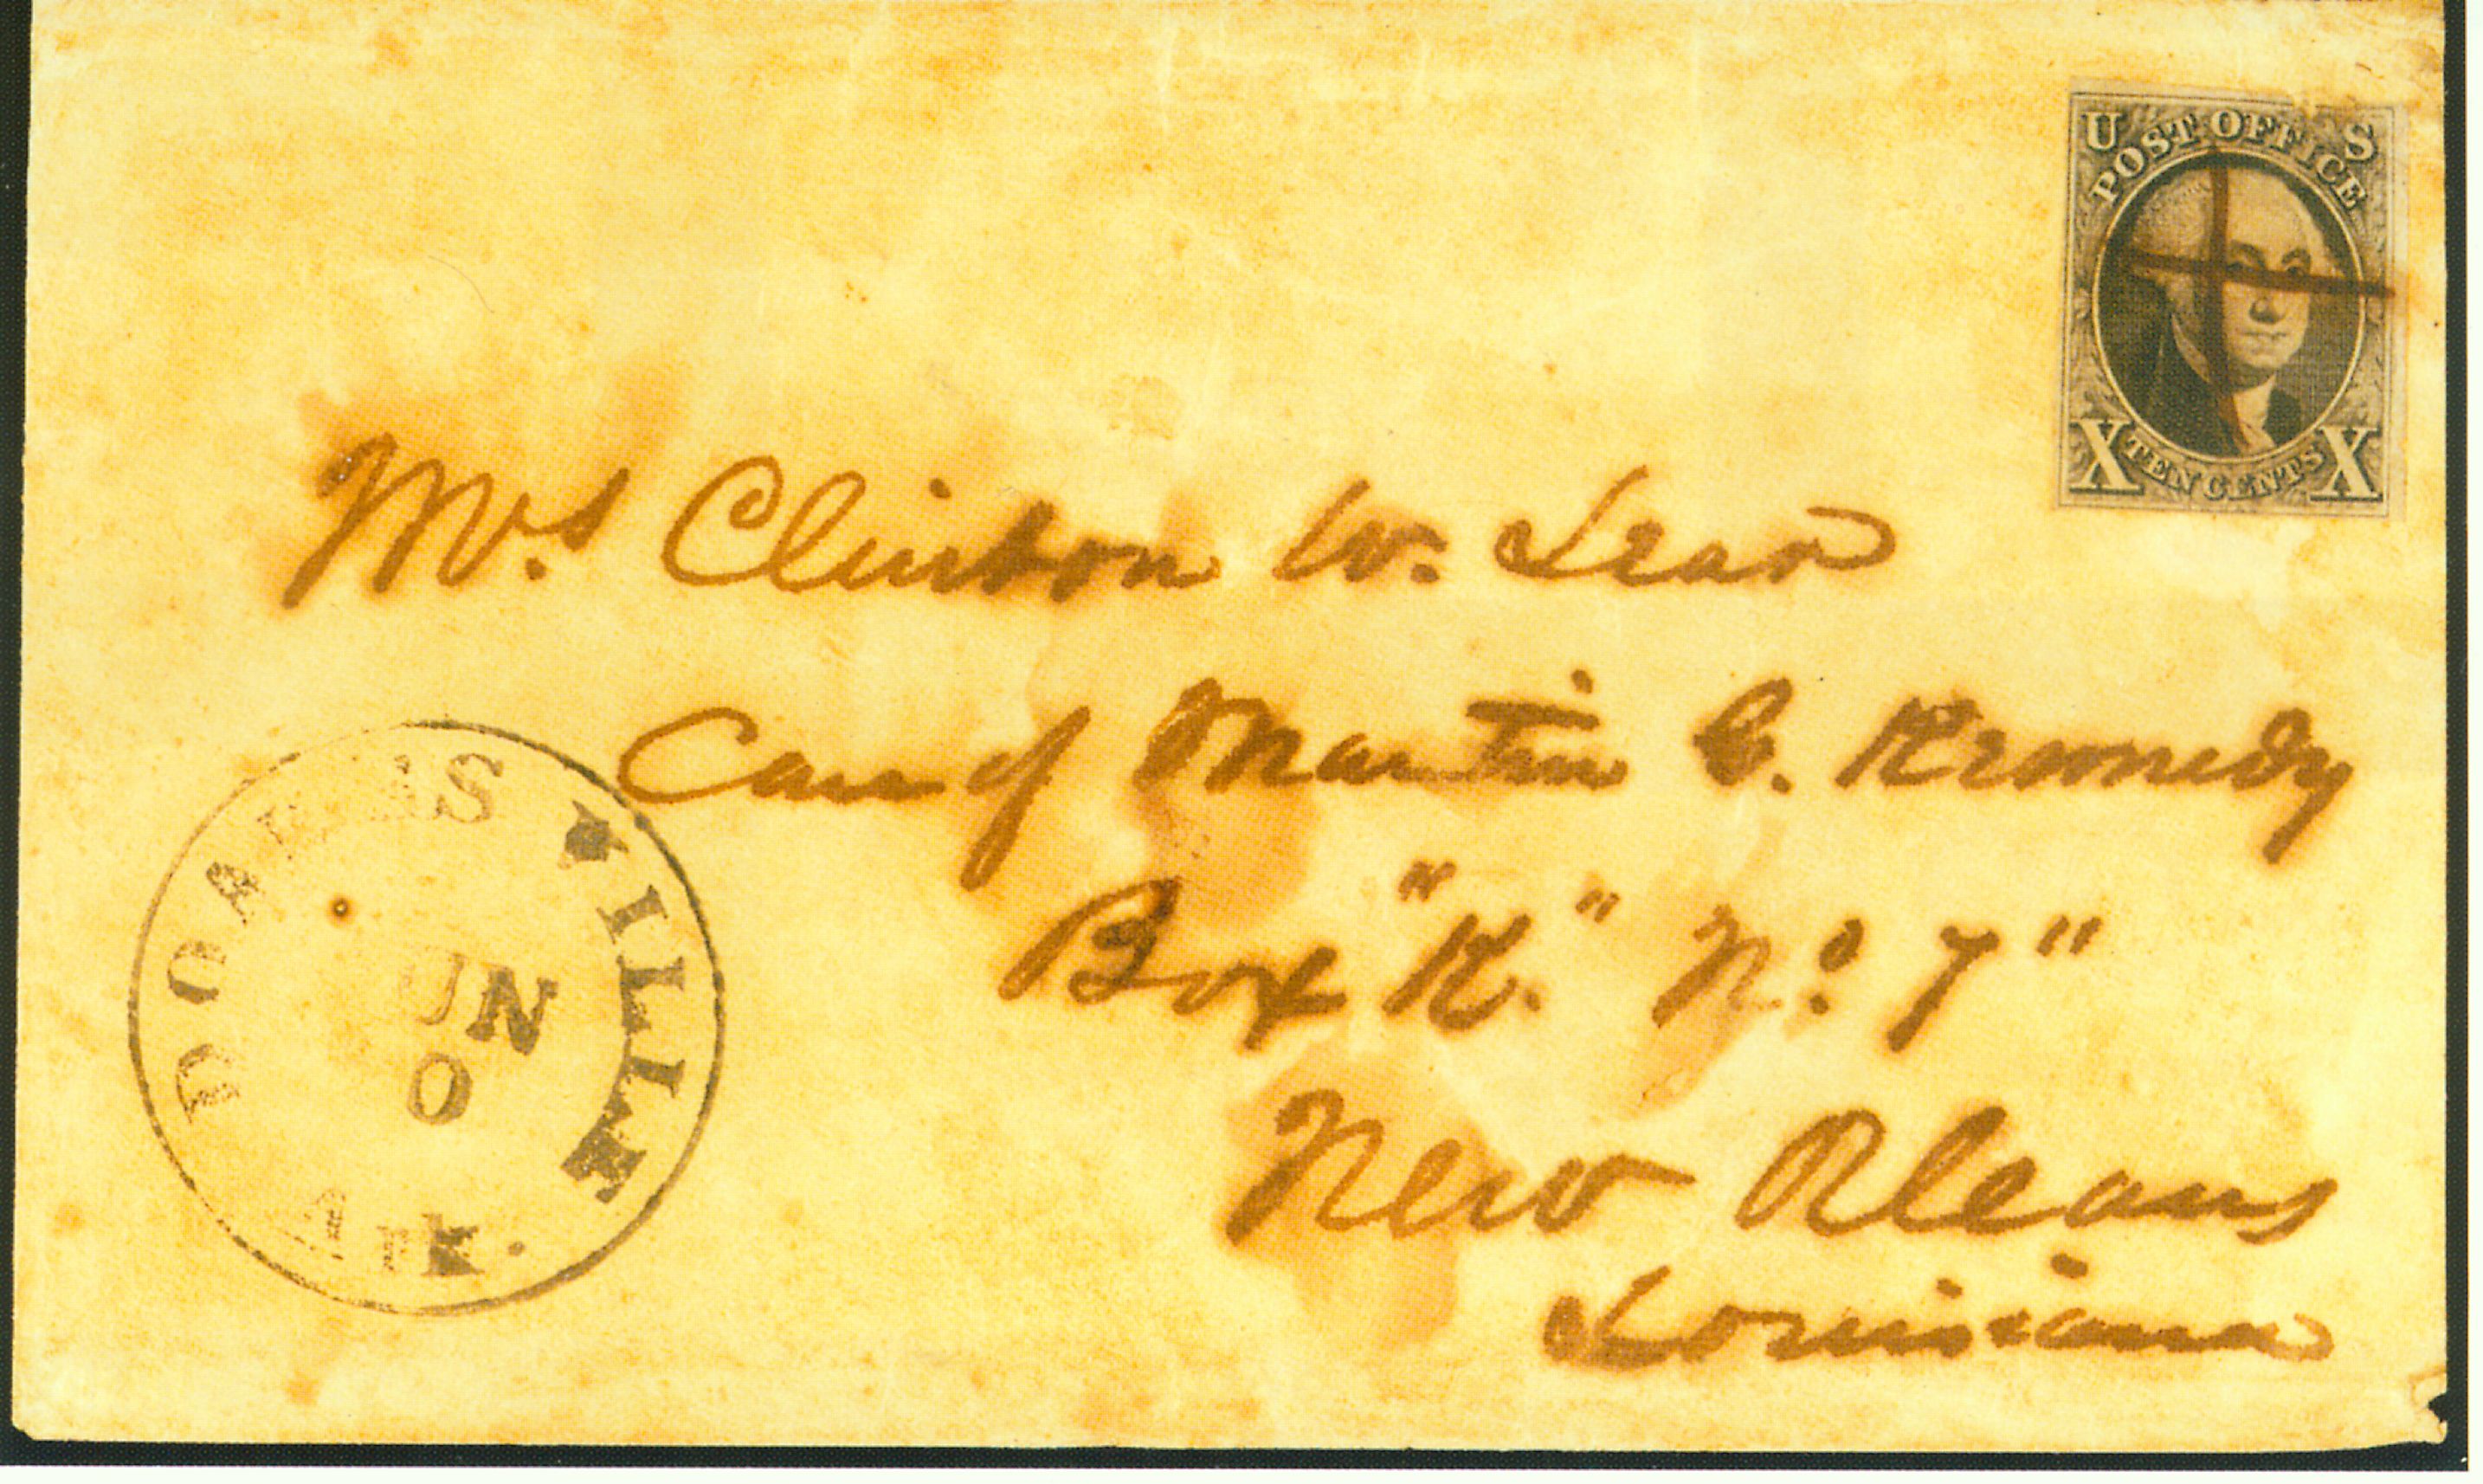 U S
POST OFFICE
X TEN CENTS X
Mrs Clinton W. Lear
Care of Martin G. Kennedy
Box "K." No. 7"
New Orleans
Louisiana
DOAKSVILLE
UN
0
Ark.